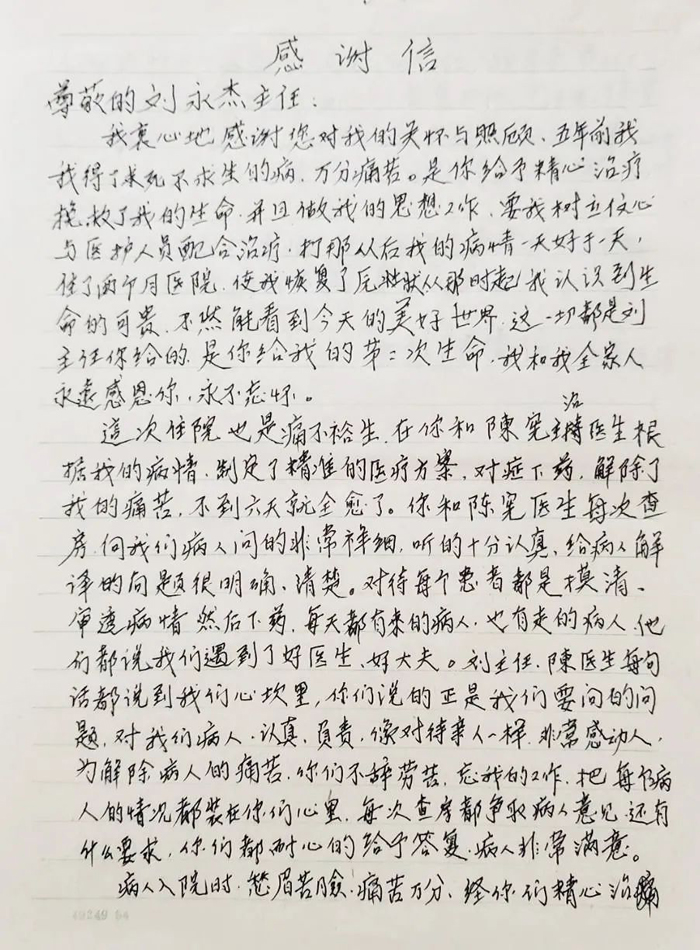 感谢信
尊敬的刘永杰主任：
我衷心地感谢您对我的关怀与照顾、五年前我
我得了求死不求生的病、万分痛苦。是你给予精心治疗
挽救了我的生命、并且做我的思想工作、要我树立信心
与医护人员配合治疗、打那从后我的病情一天好于一天、
住了两个月医院、使我恢复了原状从那时起我认识到生
命的可贵、不然能看到今天的美好世界、这一切都是刘
主任你给的、是你给我的第二次生命、我和我全家人
永远感恩你、永不忘怀。
這次住院也是痛不裕生、在你和陳宪主治医生根
据我的病情、制定了精准的医疗方案、对症下药、解除了
我的痛苦、不到六天就全愈了。你和陈宪医生每次查
房、向我们病人问的非常祥细、听的十分认真、给病人解
译的问题很明确、清楚。对待每个患者都是摸清、
审透病情然后下药、每天都有来的病人、也有走的病人、他
们都说我们遇到了好医生、好大夫。刘主任、陳医生每句
话都说到我们心坎里、你们说的正是我们要问的问
题、对我们病人、认真、负责、像对待亲人一样、非常感动人、
为解除病人的痛苦、你们不辞劳苦、忘我的工作、把每个病
人的情况都装在你们心里、每次查房都争取病人意见、还有
什么要求、你们都耐心的给予答复、病人非常满意。
病人入院时、愁眉苦脸、痛苦万分、经你们精心治
49249 84